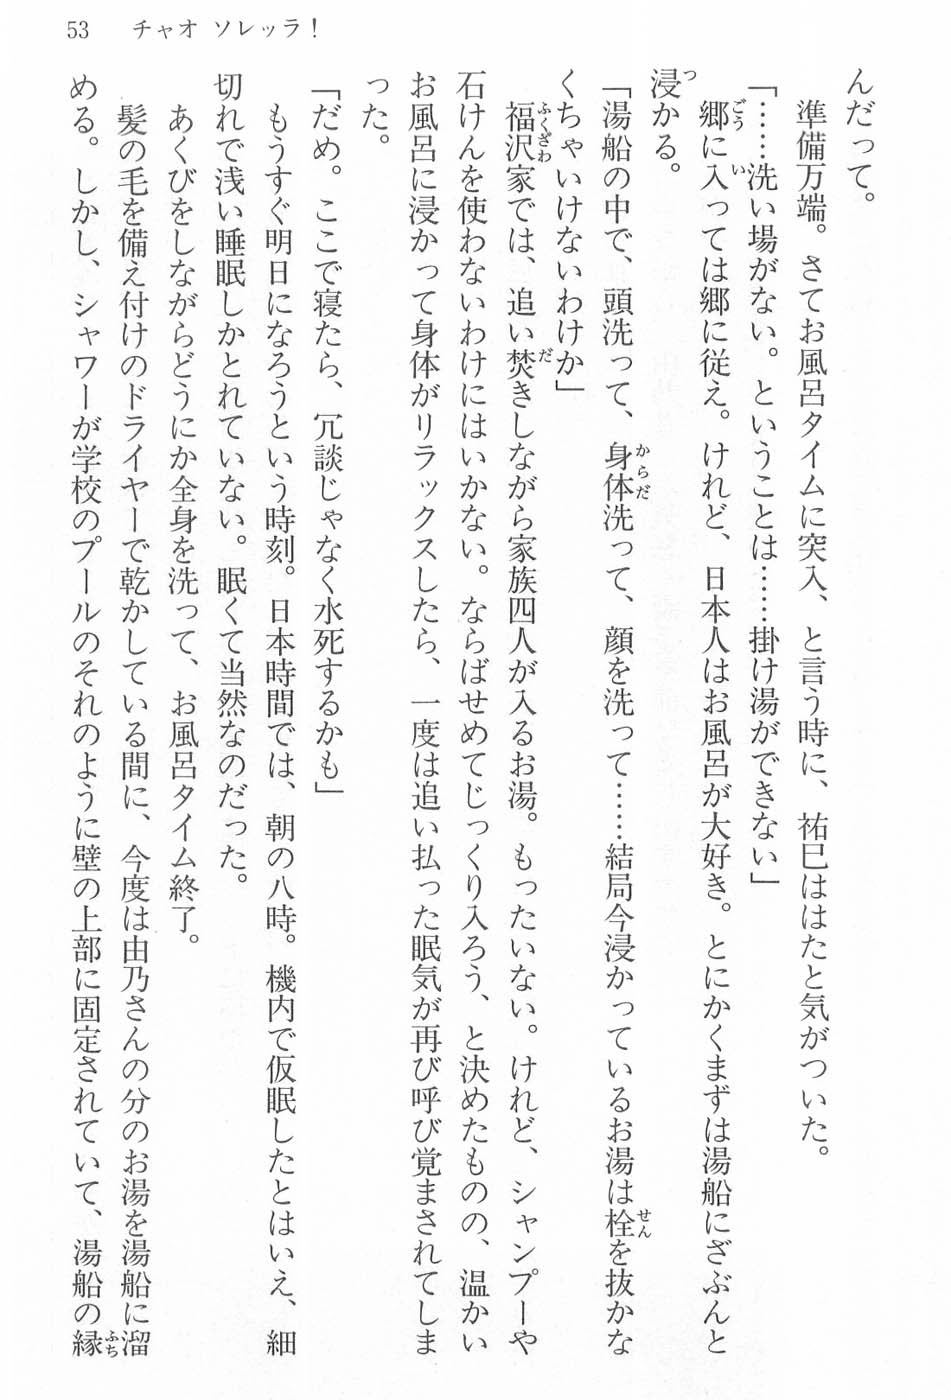 53 チャオ ソレッラ！
んだって。
準備万端。さてお風呂タイムに突入、と言う時に、祐巳ははたと気がついた。
「……洗い場がない。ということは……掛け湯ができない」
郷に入っては郷に従え。けれど、日本人はお風呂が大好き。とにかくまずは湯船にざぶんと
浸かる。
「湯船の中で、頭洗って、身体洗って、顔を洗って……結局今浸かっているお湯は栓を抜かな
くちゃいけないわけか」
福沢家では、追い焚きしながら家族四人が入るお湯。もったいない。けれど、シャンプーや
石けんを使わないわけにはいかない。ならばせめてじっくり入ろう、と決めたものの、温かい
お風呂に浸かって身体がリラックスしたら、一度は追い払った眠気が再び呼び覚まされてしま
った。
「だめ。ここで寝たら、冗談じゃなく水死するかも」
もうすぐ明日になろうという時刻。日本時間では、朝の八時。機内で仮眠したとはいえ、細
切れで浅い睡眠しかとれていない。眠くて当然なのだった。
あくびをしながらどうにか全身を洗って、お風呂タイム終了。
髪の毛を備え付けのドライヤーで乾かしている間に、今度は由乃さんの分のお湯を湯船に溜
める。しかし、シャワーが学校のプールのそれのように壁の上部に固定されていて、湯船の縁